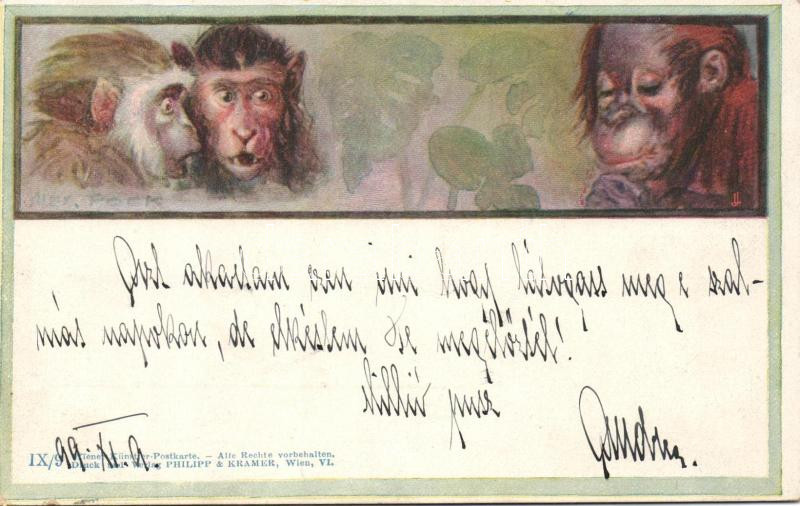 ALEX. POCK
Azt akartam ezen írni hogy látogass meg e szal-
más napokon, de elkéstem Te megelőztél!
Millió pusz
99. XI. 9.
IX/9 Wiener Künstler-Postkarte. – Alle Rechte vorbehalten.
Druck und Verlag PHILIPP & KRAMER, Wien, VI.